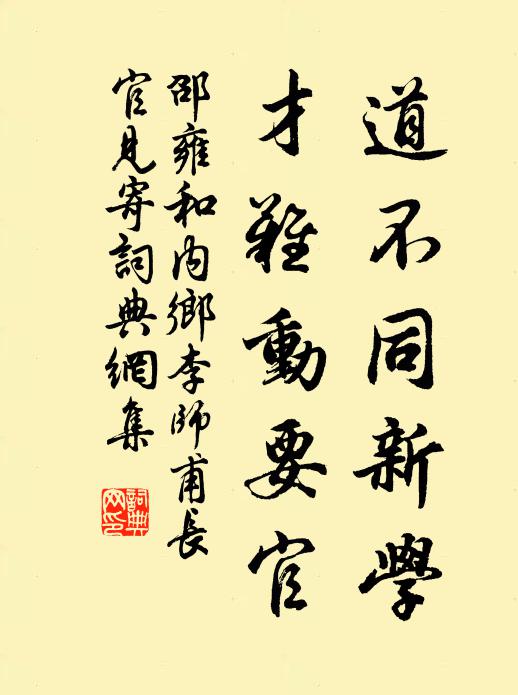 道不同新學
才難動要官
邵雍和内鄉李師甫長
官見寄詞典網集
詞典
网印